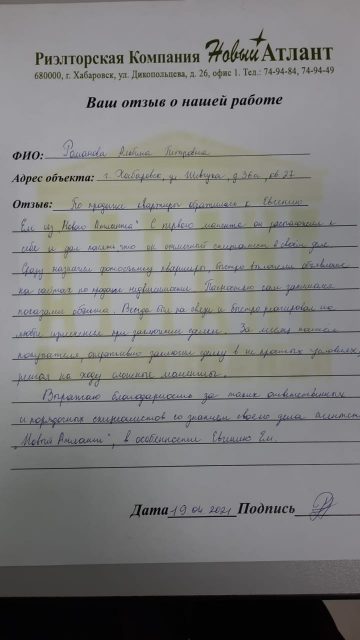 Риэлторская Компания Новый Атлант
680000, г. Хабаровск, ул. Дикопольцева, д. 26, офис 1. Тел.: 74-94-84, 74-94-49
Ваш отзыв о нашей работе
ФИО: Романова Альбина Петровна
Адрес объекта: г. Хабаровск, ул Шевчука, д 36а, кв 27
Отзыв: По продаже квартиры обратились к Евгению
Ем из "Нового Атланта" С первого момента он расположил к
себе и дал понять что он отличный специалист в своём деле
Сразу назначил фотосъемку квартиры, быстро выложили объявление
на сайтах по продаже недвижимости. Полностью сам занимался
показами объекта. Всегда был на связи и быстро реагировал на
любые изменения при заключении сделки. За месяц нашли
покупателя, оперативно заключил сделку в не простых условиях,
решал на ходу сложные моменты.
Выражаю благодарность за таких ответственных
и порядочных специалистов со знанием своего дела агентству
"Новый Атлант", в особенности Евгению Ем.
Дата 19 04 2021 Подпись